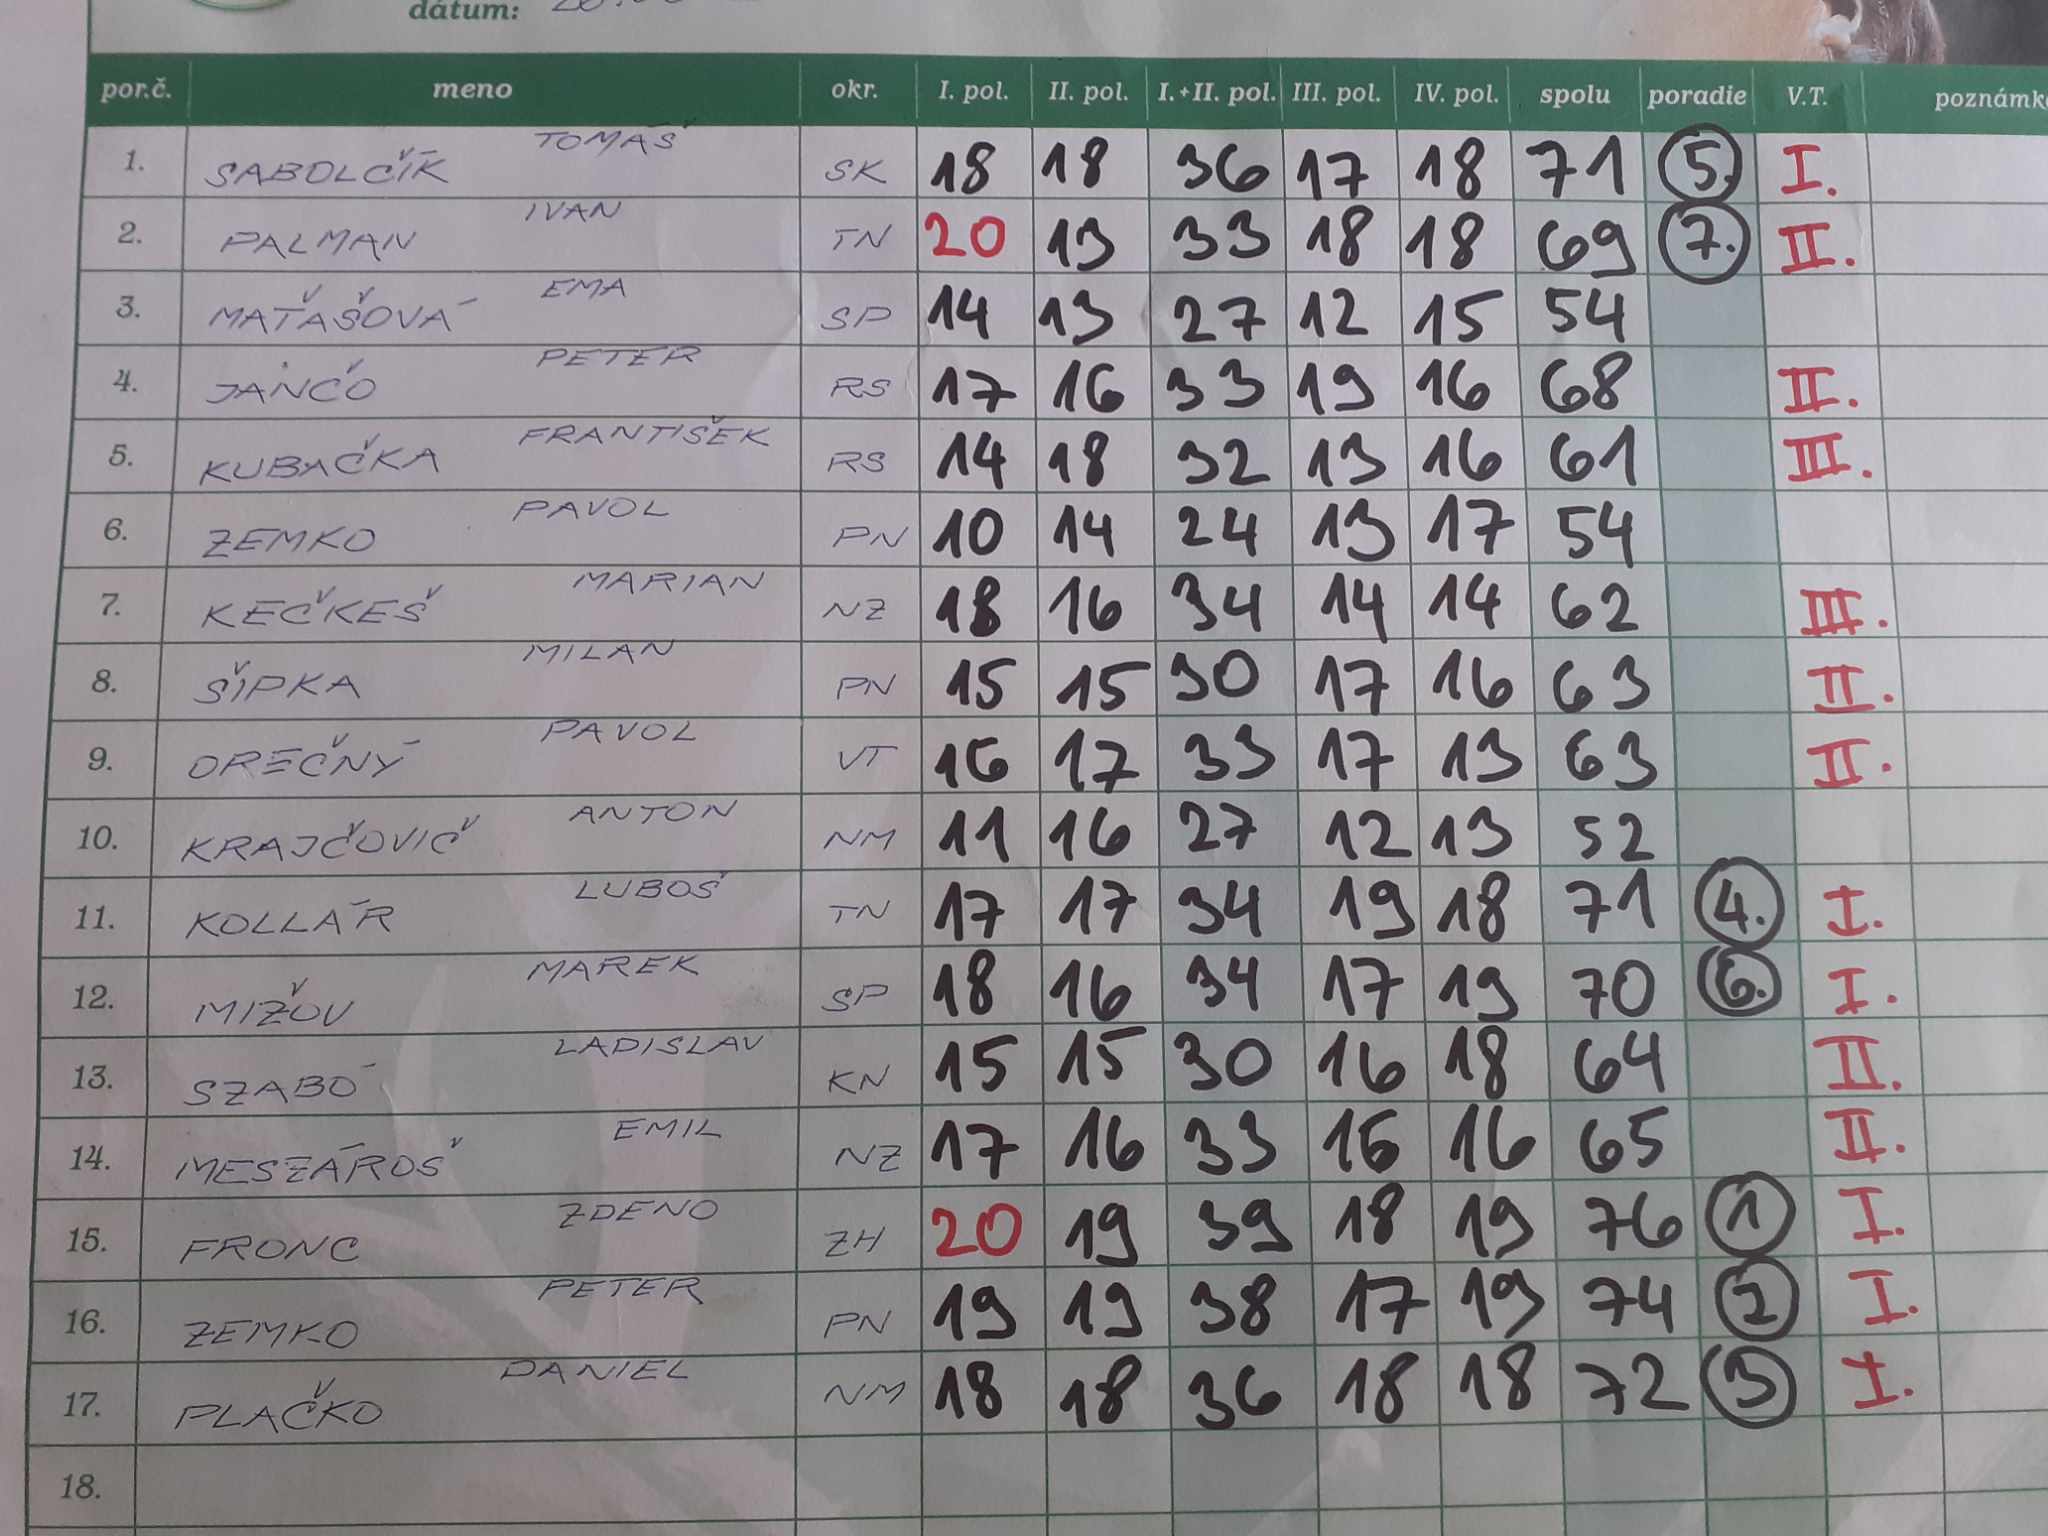 dátum:
por.č. meno okr. I. pol. II. pol. I.+II. pol. III. pol. IV. pol. spolu poradie V.T. poznámk
1. SABOLČÍK TOMÁŠ SK 18 18 36 17 18 71 5. I.
2. PALMAN IVAN TN 20 13 33 18 18 69 7. II.
3. MAŤAŠOVÁ EMA SP 14 13 27 12 15 54
4. JANČO PETER RS 17 16 33 19 16 68 II.
5. KUBAČKA FRANTIŠEK RS 14 18 32 13 16 61 III.
6. ZEMKO PAVOL PN 10 14 24 13 17 54
7. KEČKEŠ MARIAN NZ 18 16 34 14 14 62 III.
8. ŠÍPKA MILAN PN 15 15 30 17 16 63 II.
9. OREČNÝ PAVOL VT 16 17 33 17 13 63 II.
10. KRAJČOVIČ ANTON NM 11 16 27 12 13 52
11. KOLLÁR LUBOŠ TN 17 17 34 19 18 71 4. I.
12. MIŽOV MAREK SP 18 16 34 17 19 70 6. I.
13. SZABÓ LADISLAV KN 15 15 30 16 18 64 II.
14. MESZÁROŠ EMIL NZ 17 16 33 16 16 65 II.
15. FRONC ZDENO ZH 20 19 39 18 19 76 1 I.
16. ZEMKO PETER PN 19 19 38 17 19 74 2 I.
17. PLAČKO DANIEL NM 18 18 36 18 18 72 3 I.
18.